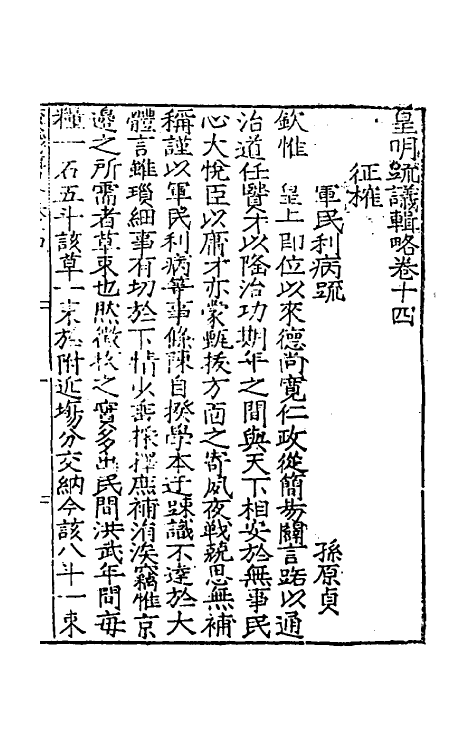 皇明疏議輯略卷十四
征榷
軍民利病疏
孫原貞
欽惟 皇上即位以來德尚寬仁政從簡易開言路以通
治道任賢才以隆治功期年之間與天下相安於無事民
心大悅臣以庸才亦蒙甄拔方面之寄夙夜戰兢思無補
稱謹以軍民利病等事條陳自揆學本迂踈識不達於大
體言雖瑣細事有切於下情火垂採擇庶補涓涘竊惟京
邊之所需者草束也然徵收之實多出民間洪武年間每
糧一石五斗該草一束於附近場分交納今該八斗一束